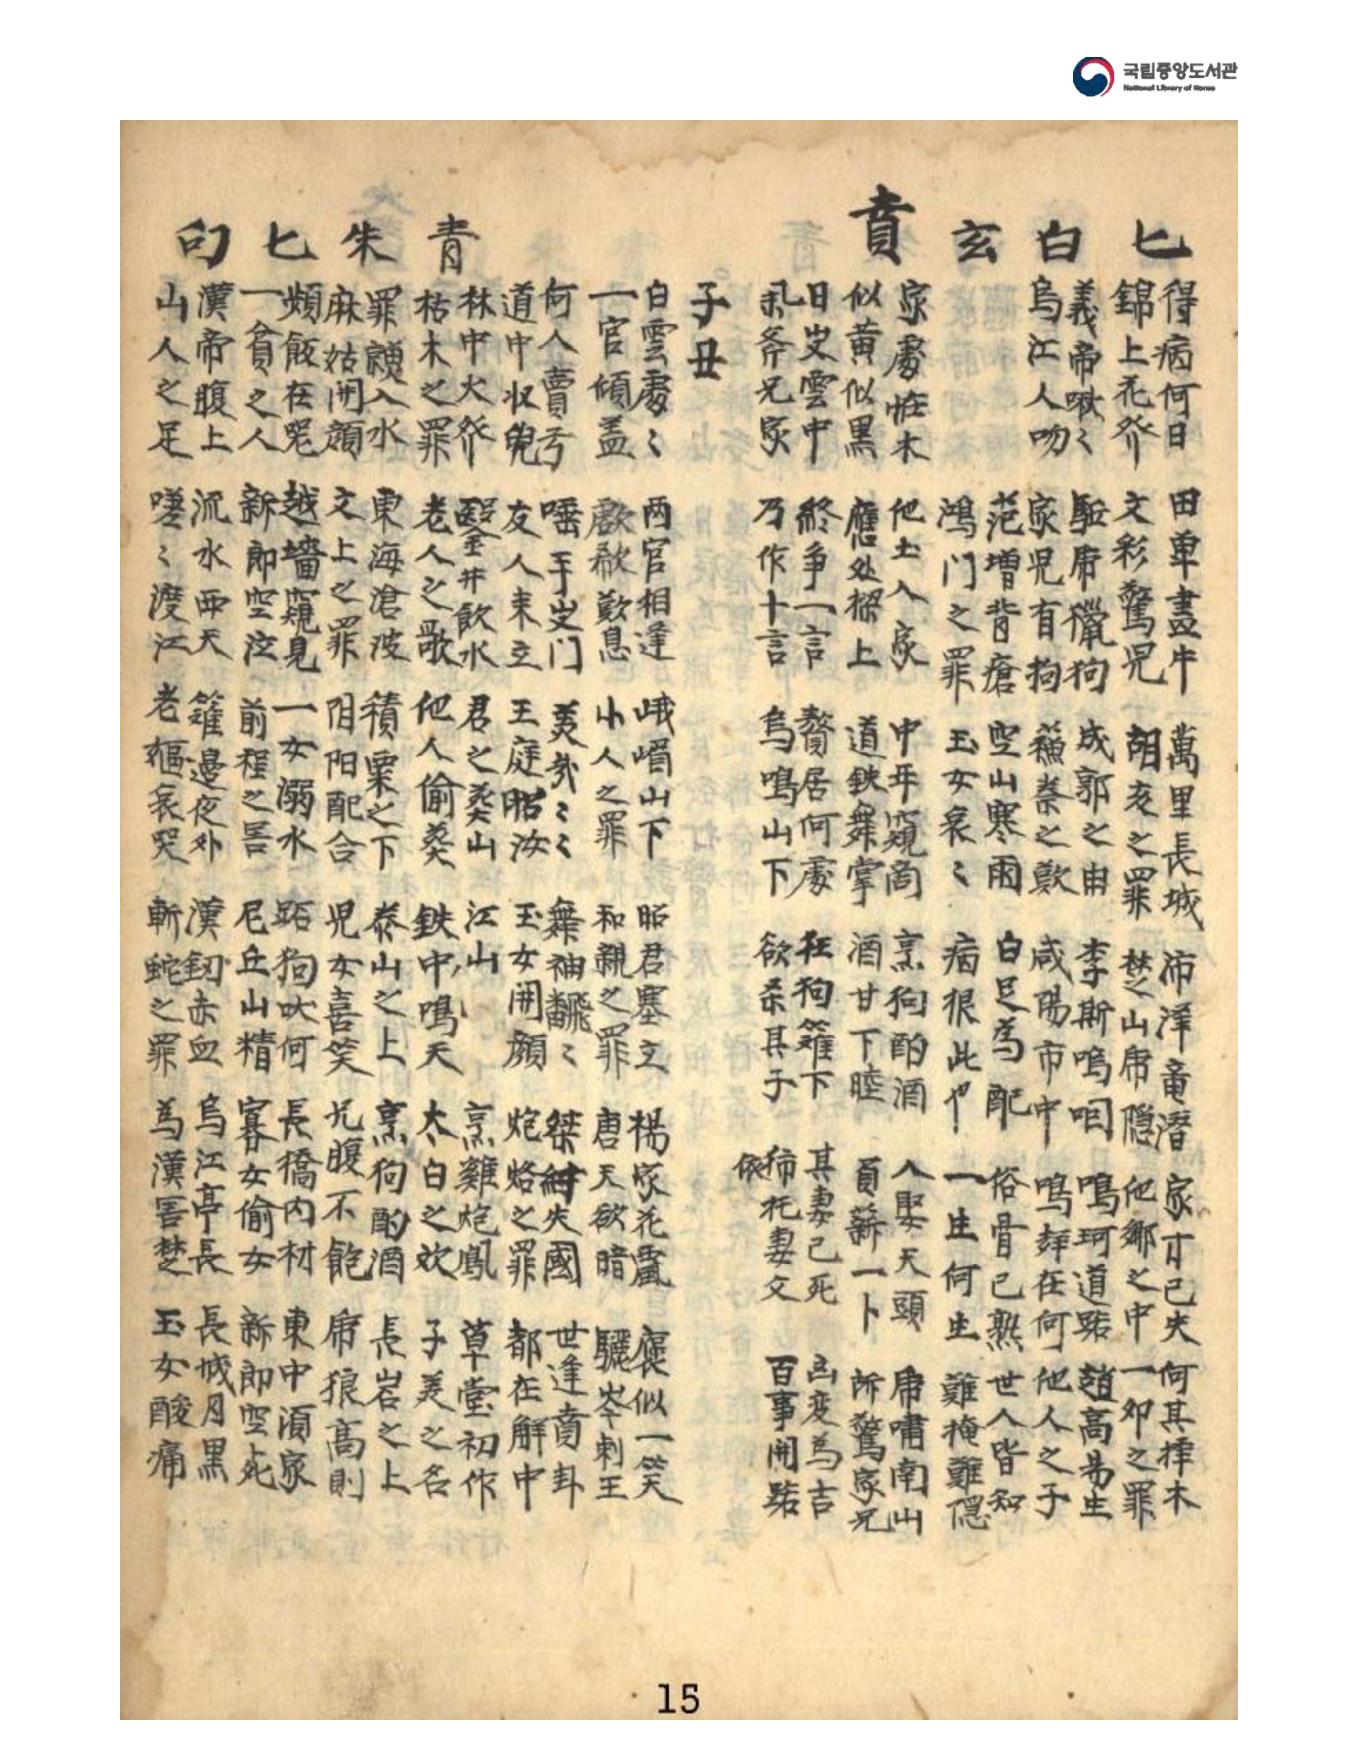 국립중앙도서관
National Library of Korea
匕
得病何日 田單盡牛 萬里長城 沛澤竜潛 家才已失 何其擇木
錦上花發 文彩驚児 胡亥之罪 楚山席隱 他鄉之中 一卯之罪
白
義帝啾〻 駈席獵狗 成郭之由 李斯嗚咽 鳴珂道路 趙高易生
烏江人吻 家児有拘 蘓秦之歎 咸陽市中 鳴在何 他人之子
玄
范增背瘡 空山寒雨 白足為配 俗骨已熟 世人皆知
鴻门之罪 玉女哀〻 病根此 一生何生 難掩難隱
賁
家處恠木 他土入家 中年窺商 烹狗酌酒 入娶天頭 席嘯南山
似黄似黑 應处樑上 道鉄舞掌 酒甘下睦 負薪一卜 所驚家兄
日出雲中 終爭一言 贅居何處 狂狗籬下 其妻已死 凶变為吉
斧兄家 乃作十言 烏鳴山下 欲杀其子 依托妻文 百事開路
子丑
白雲處〻 两官相逢 峨嵋山下 昭君塞立 楊家花露 褒似一笑
一官傾盖 歔欷歎息 小人之罪 和親之罪 唐天欲暗 驪岑刺王
青
何人賣弓 唾手出门 美哉〻〻 舞袖翻〻 桀紂失國 世逢賁卦
道中収兕 友人来立 王庭昭汝 玉女開顔 炮烙之罪 都在解中
林中火發 鑿井飲水 君之葬山 江山 烹雞炮鳳 草堂初作
枯木之罪 老人之歌 他人偷葬 鉄中鳴天 太白之欢 子美之名
朱
罪魂入水 東海滄波 積粟之下 泰山之上 烹狗酌酒 長岩之上
麻姑開顔 文上之罪 阴阳配合 児女喜笑 兄腹不飽 席狼高則
匕
頻飯在兕 越墻窺見 一女溺水 路狗吠何 長橋内材 東中湏家
一貧之人 新郎空泣 前程之害 尼丘山精 寡女偷女 新郎空死
勾
漢帝腹上 流水西天 籬邊夜外 漢釼赤血 烏江亭長 長城月黒
山人之足 嗟〻渡江 老嫗哀哭 斬蛇之罪 為漢害楚 玉女酸痛
15